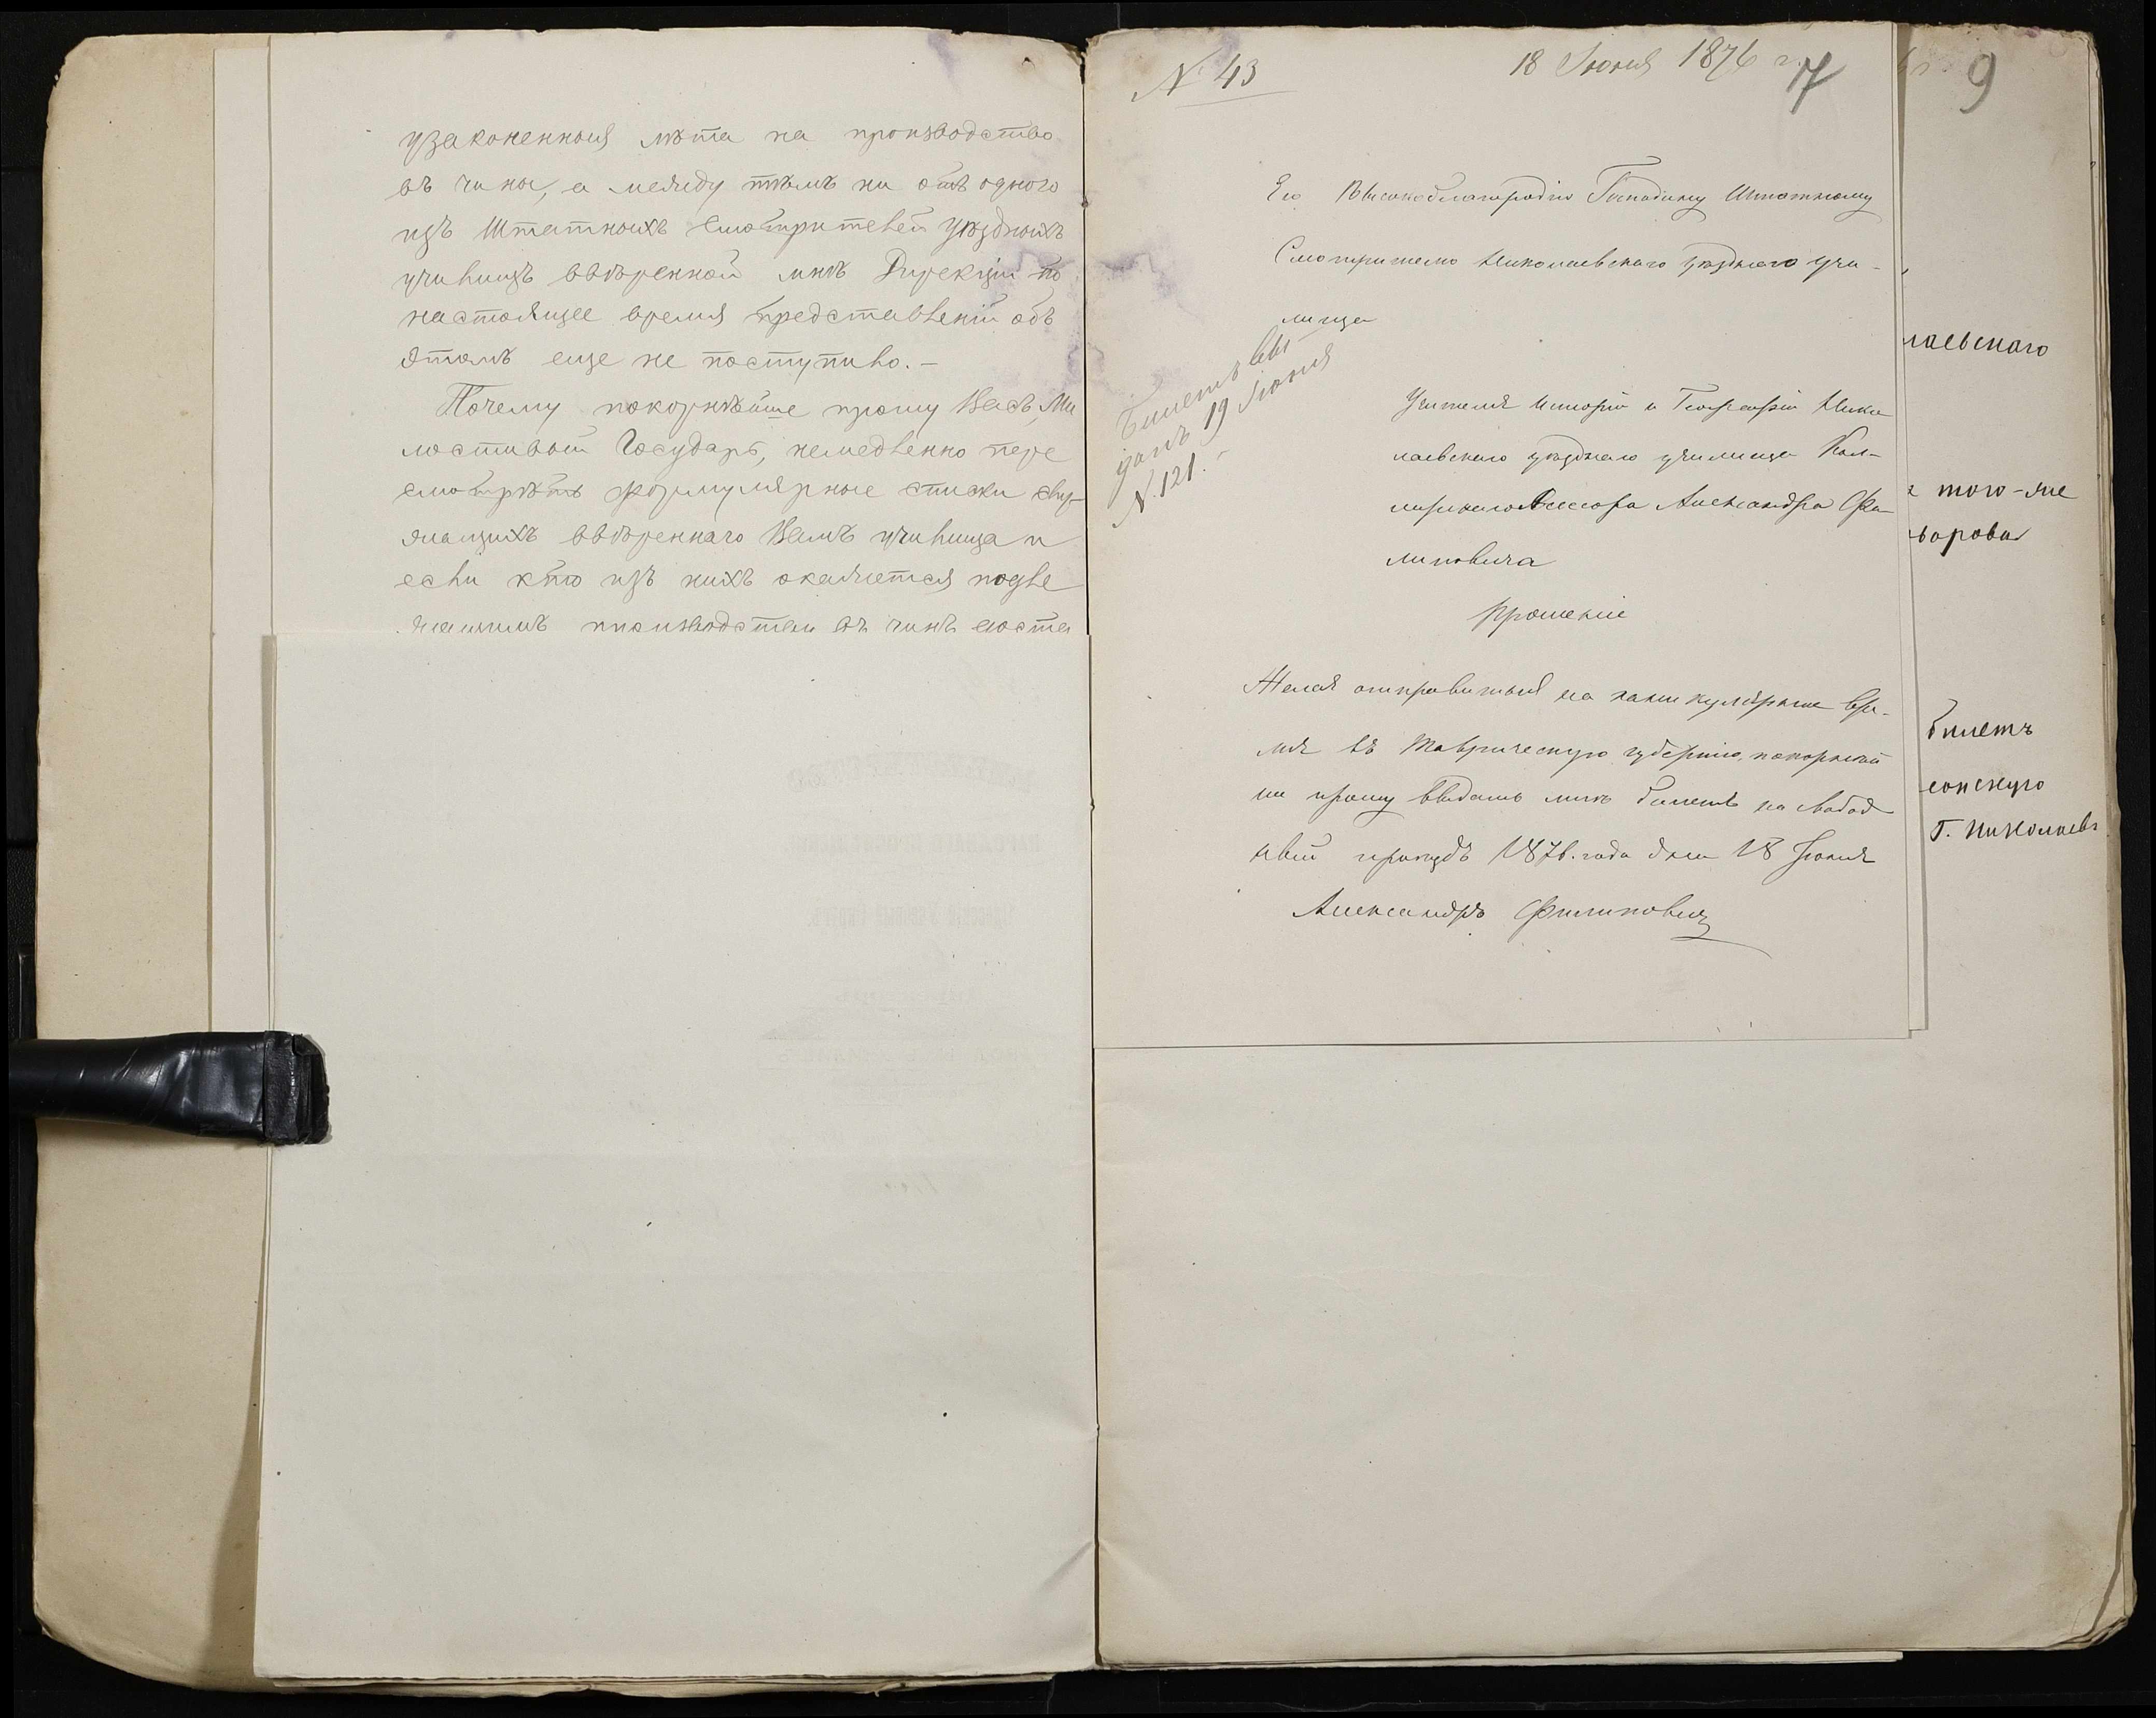 узаконенныя лѣта на производство
въ чины, а между тѣмъ ни отъ одного
изъ Штатныхъ Смотрителей уѣздныхъ
училищъ ввѣренной мнѣ Дирекціи по
настоящее время представленій объ
этомъ еще не поступило. –
Почему покорнѣйше прошу Васъ, Ми
лостивый Государь, немедленно пере
смотрѣть формулярные списки слу-
жащихъ ввѣреннаго Вамъ училища и
если кто изъ нихъ окажется подле
жащимъ производствомъ въ чинъ соста
№ 43
18 Іюня 1876 г.
7
Его Высокоблагородію Господину Штатному
Смотрителю Николаевскаго уѣзднаго учи-
лища
Билетъ вы-
данъ 19 Іюня
№. 121.
Учителя Исторіи и Географіи Нико
лаевскаго уѣзднаго училища Кол-
лежскаго Ассесора Александра Фи-
липовича
Прошеніе
Желая отправиться на каникулярное вре-
мя въ Таврическую губернію, покорнѣй
ше прошу выдать мнѣ билетъ на свобод
ный проѣздъ 1876. года дня 18 Іюня
Александръ Филиповичъ
9
лаевскаго
того-же
ворова
билетъ
сонскую
Г. Николаевъ